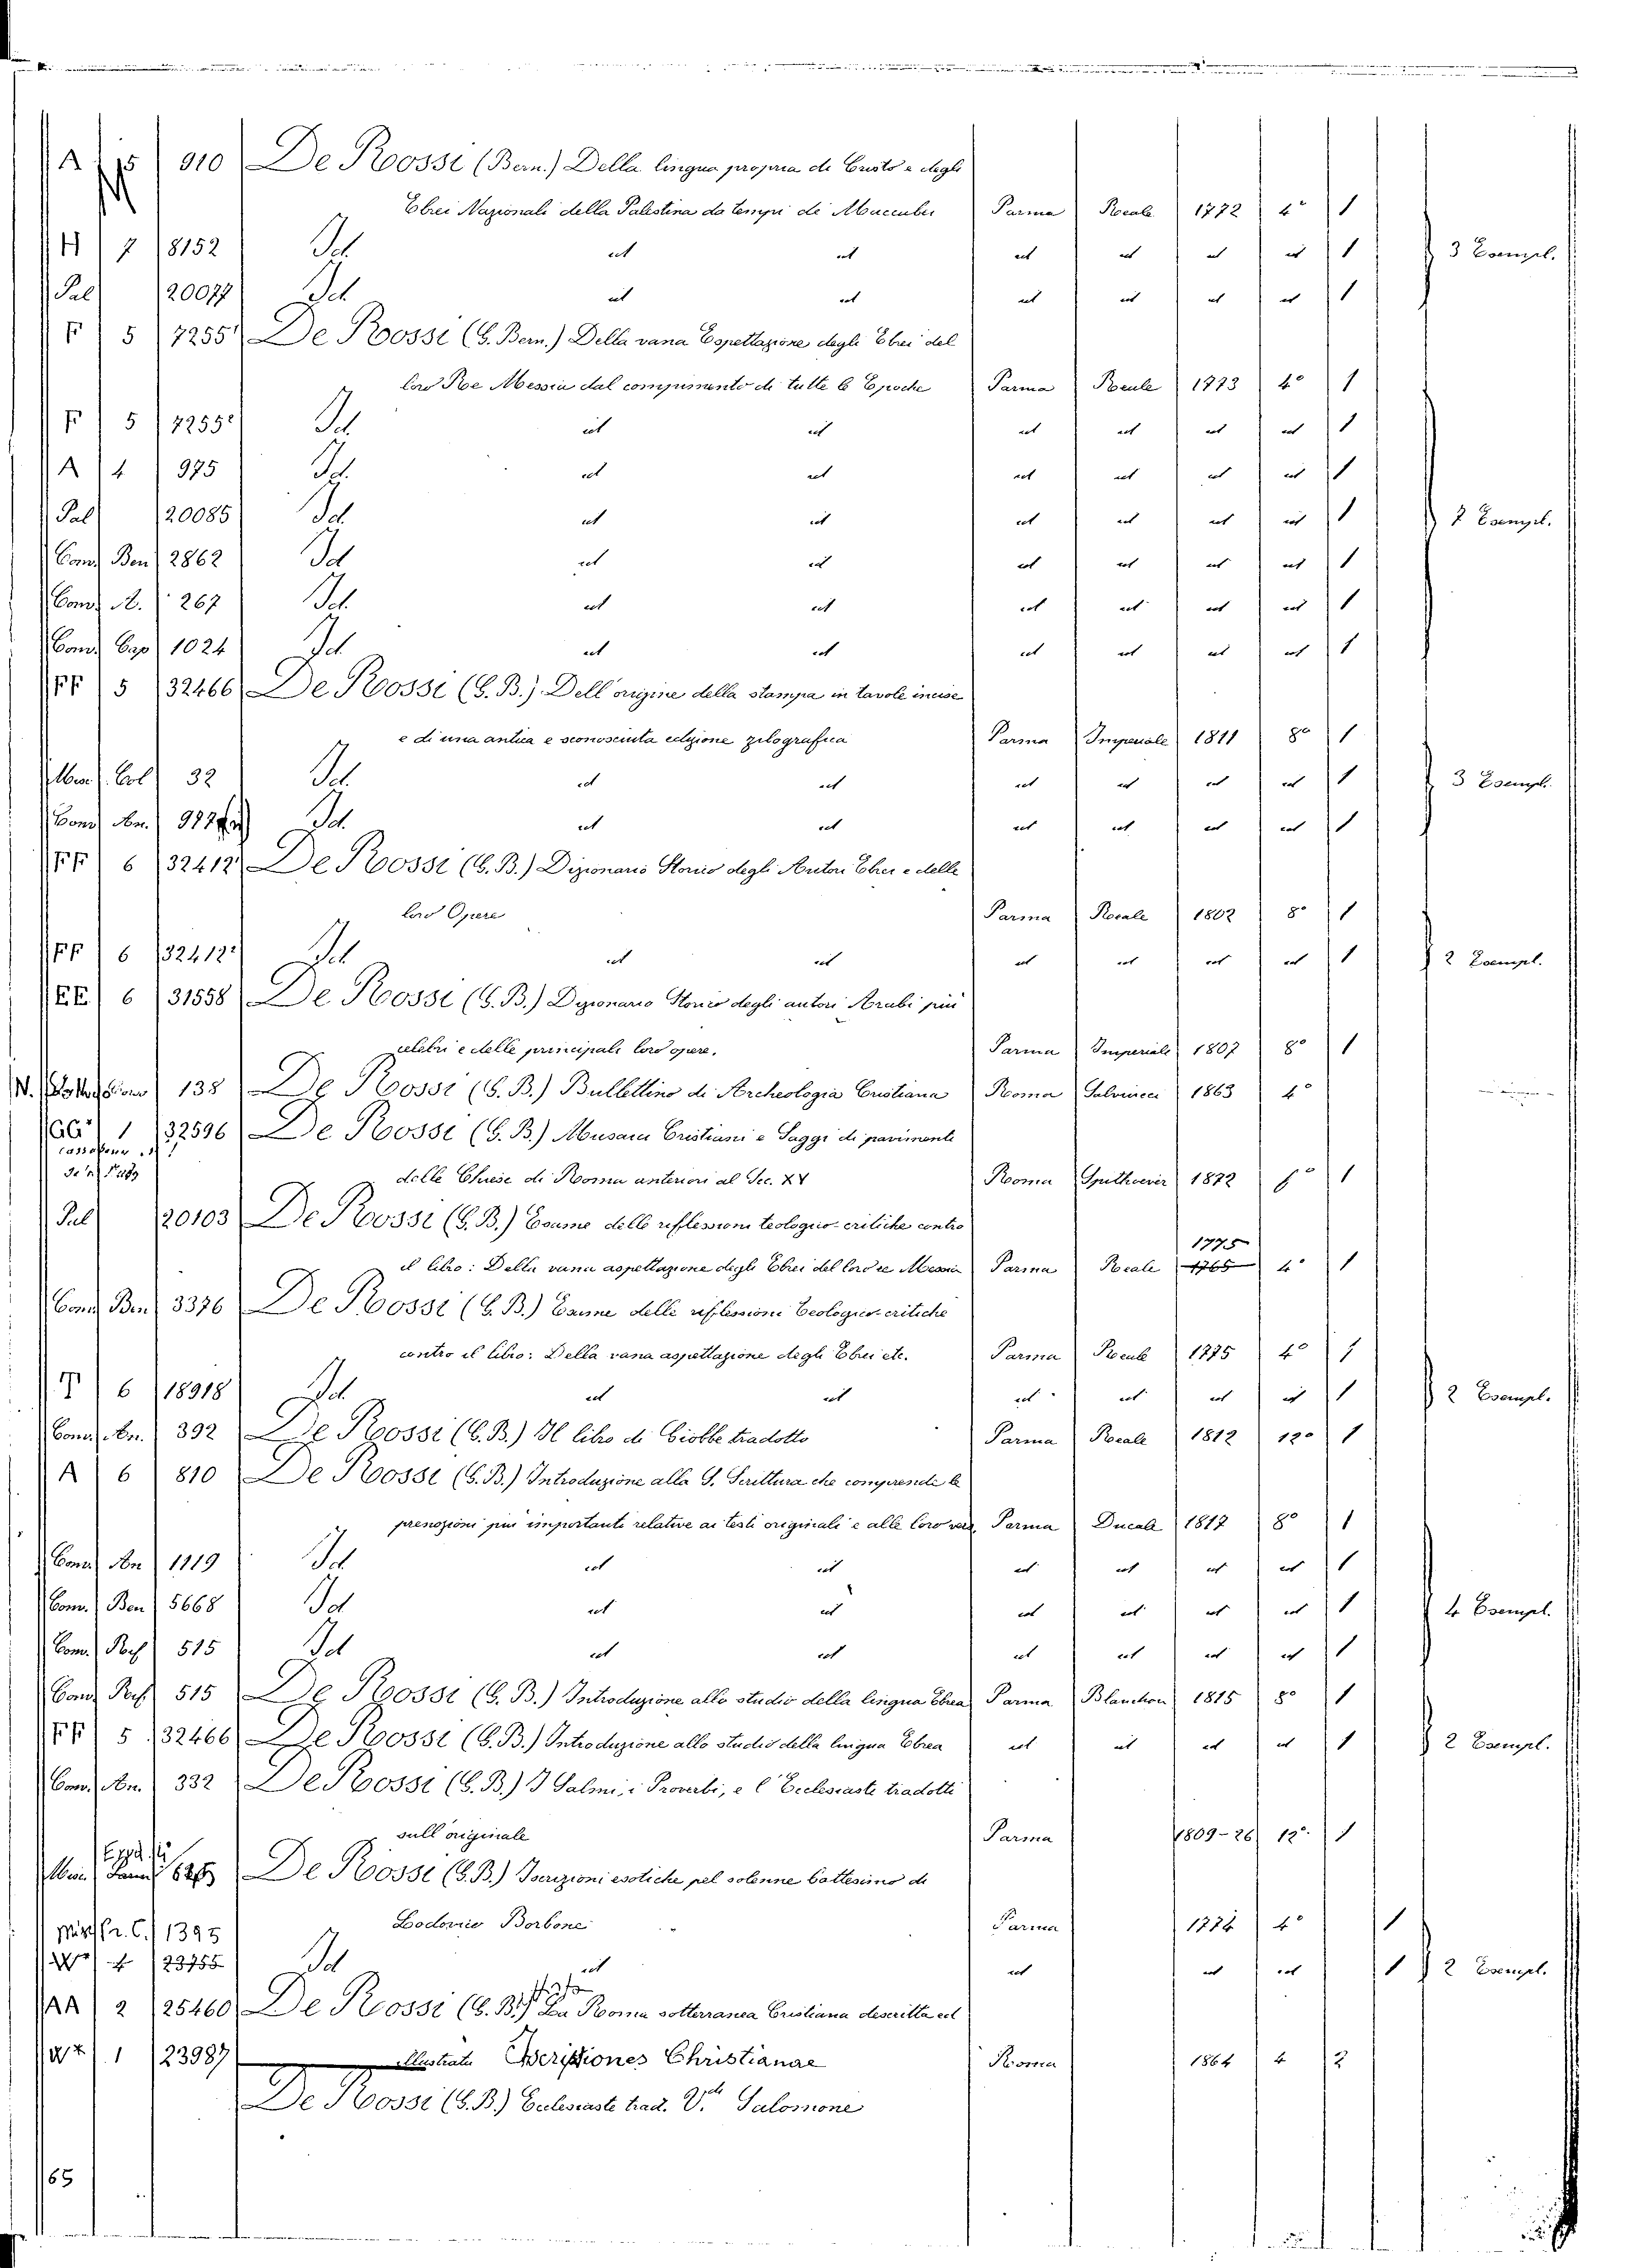 A 15 910 De Rossi (Bern.) Della lingua propria di Cristo e degli
Ebrei Nazionali della Palestina da tempi de Maccabei Parma Reale 1772 4° 1
H 7 8152 Id. id id id id id id 1 3 Esempl.
Pal 20077 Id id id id id id id 1
F 5 7255¹ De Rossi (G. Bern.) Della vana Espettazione degli Ebrei del
loro Re Messia dal compimento di tutte le Epoche Parma Reale 1773 4° 1
F 5 7255² Id. id id id id id id 1
A 4 975 Id. id id id id id id 1
Pal 20085 Id. id id id id id id 1 7 Esempl.
Com. Ben 2862 Id id id id id id id 1
Com. A. 267 Id. id id id id id id 1
Com. Cap 1024 Id. id id id id id id 1
FF 5 32466 De Rossi (G. B.) Dell'origine della stampa in tavole incise
e di una antica e sconosciuta edizione zilografica Parma Imperiale 1811 8° 1
Col 32 Id. id id id id id id 1 3 Esempl.
Com. An. Id. id id id id id id 1
FF 6 32412¹ De Rossi (G. B.) Dizionario Storico degli Autori Ebrei e delle
loro Opere Parma Reale 1802 8° 1
FF 6 32412² Id. id id id id id id 1 2 Esempl.
EE 6 31558 De Rossi (G. B.) Dizionario Storico degli autori Arabi più
celebri e delle principali loro opere. Parma Imperiale 1807 8° 1
138 De Rossi (G. B.) Bullettino di Archeologia Cristiana Roma Salviucci 1863 4°
GG 1 32596 De Rossi (G. B.) Musaici Cristiani e Saggi di pavimenti
delle Chiese di Roma anteriori al Sec. XV Roma Spithoever 1872 1
Pal 20103 De Rossi (G. B.) Esame delle riflessioni teologico-critiche contro
1775
il libro: Della vana aspettazione degli Ebrei del loro re Messia Parma Reale 1765 4° 1
Com. Ben 3376 De Rossi (G. B.) Esame delle riflessioni teologico-critiche
contro il libro: Della vana aspettazione degli Ebrei etc. Parma Reale 1775 4° 1
T 6 18918 Id. id id id id id id 1 2 Esempl.
Com. An. 392 De Rossi (G. B.) Il libro di Giobbe tradotto Parma Reale 1812 12° 1
A 6 810 De Rossi (G. B.) Introduzione alla S. Scrittura che comprende le
prenozioni più importanti relative ai testi originali e alle loro vers. Parma Ducale 1817 8° 1
Com. An 1119 Id. id id id id id id 1
Com. Ben 5668 Id id id id id id id 1 4 Esempl.
Com. 515 Id id id id id id id 1
Com. 515 De Rossi (G. B.) Introduzione allo studio della lingua Ebrea Parma Blanchon 1815 8° 1
FF 5 32466 De Rossi (G. B.) Introduzione allo studio della lingua Ebrea id id id id 1 2 Esempl.
Com. An. 332 De Rossi (G. B.) I Salmi, i Proverbi, e l'Ecclesiaste tradotti
sull originale Parma 1809-26 12° 1
De Rossi (G. B.) Iscrizioni esotiche pel solenne battesimo di
1395 Lodovico Borbone Parma 1774 4° 1
4 23755 Id id id id id 1 2 Esempl.
AA 2 25460 De Rossi (G. B.) La Roma sotterranea Cristiana descritta ed
1 23987 illustrata Christianae Roma 1864 4 2
De Rossi (G. B.) Ecclesiaste trad. V. Salomone
65